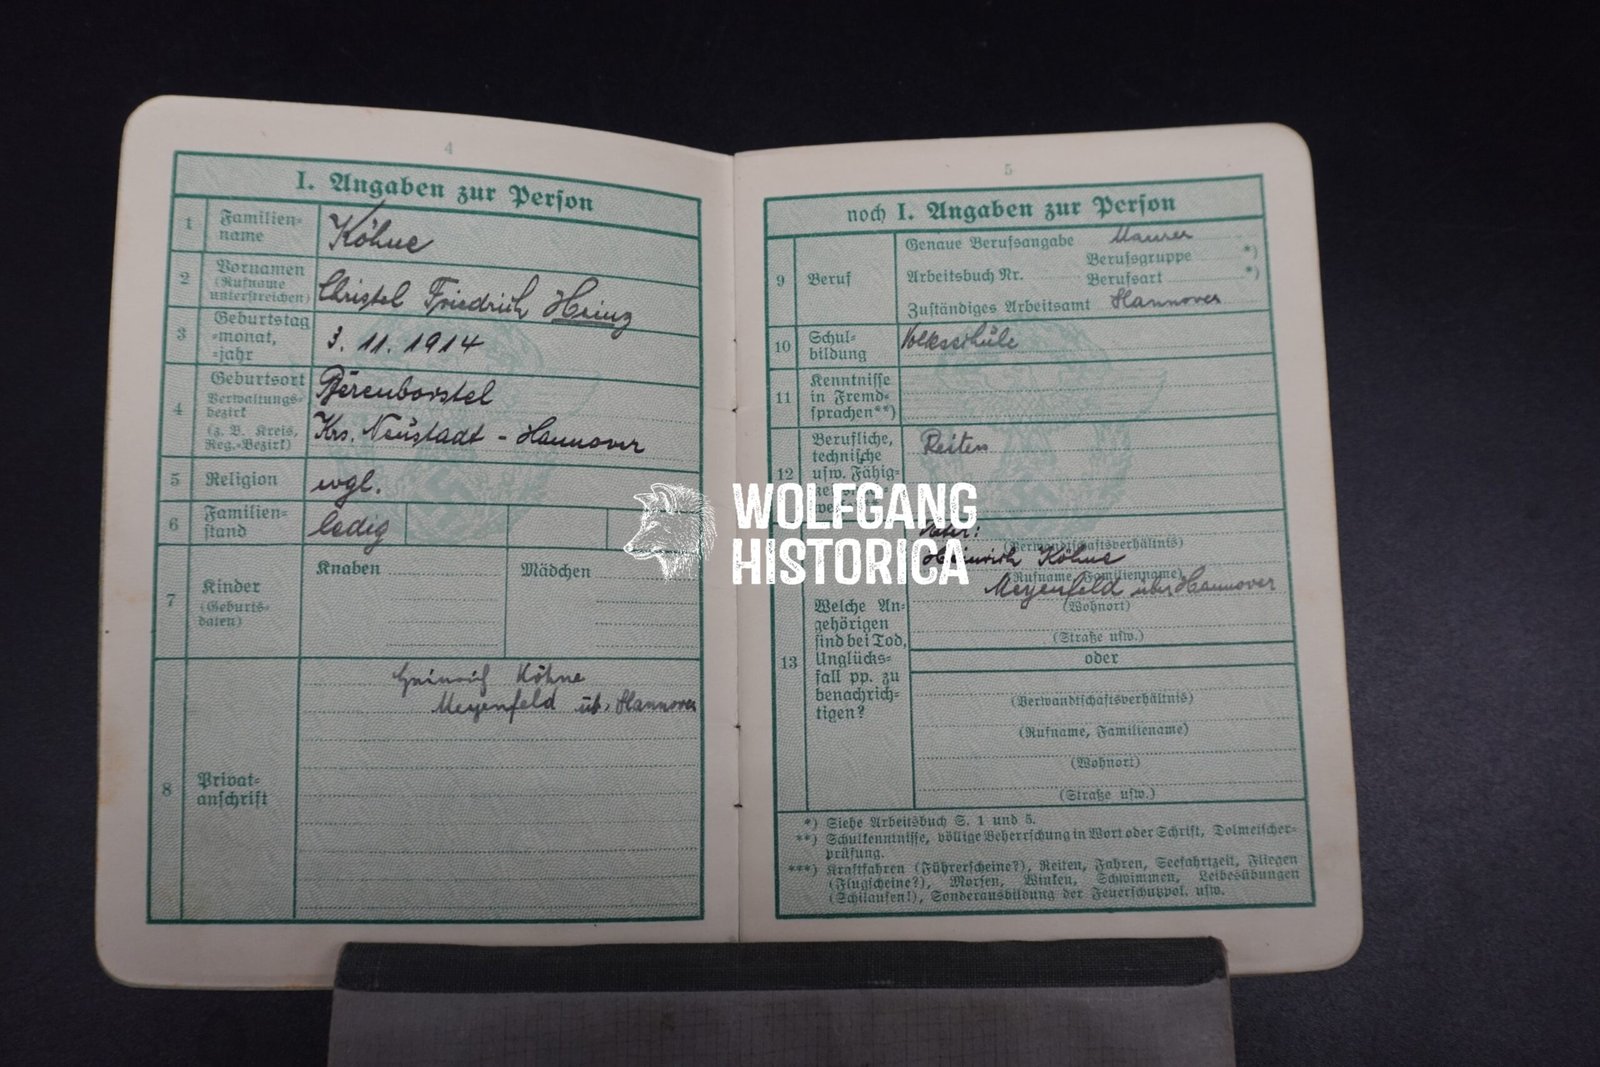 4
I. Angaben zur Person
1 Familien-
name
Köhne
2 Vornamen
(Rufname
unterstreichen)
Christel Friedrich Heinz
3 Geburtstag
-monat,
-jahr
3. 11. 1914
4 Geburtsort
Verwaltungs-
bezirk
(z. B. Kreis,
Reg.-Bezirk)
Berenborstel
Krs. Neustadt - Hannover
5 Religion
evgl.
6 Familien-
stand
ledig
7 Kinder
(Geburts-
daten)
Knaben Mädchen
8 Privat-
anschrift
Heinrich Köhne
Meyenfeld üb. Hannover
5
noch I. Angaben zur Person
9 Beruf
Genaue Berufsangabe Maurer
Berufsgruppe *)
Arbeitsbuch Nr. Berufsart *)
Zuständiges Arbeitsamt Hannover
10 Schul-
bildung
Volksschule
11 Kenntnisse
in Fremd-
sprachen**)
12 Berufliche,
technische
usw. Fähig-
Reiten
WOLFGANG
HISTORICA
13 Welche An-
gehörigen
sind bei Tod,
Unglücks-
fall pp. zu
benachrich-
tigen?
Vater:
(Verwandtschaftsverhältnis)
Heinrich Köhne
(Rufname, Familienname)
Meyenfeld über Hannover
(Wohnort)
(Straße usw.)
oder
(Verwandtschaftsverhältnis)
(Rufname, Familienname)
(Wohnort)
(Straße usw.)
*) Siehe Arbeitsbuch S. 1 und 5.
**) Schulkenntnisse, völlige Beherrschung in Wort oder Schrift, Dolmetscher-
prüfung.
***) Kraftfahren (Führerscheine?), Reiten, Fahren, Seefahrtzeit, Fliegen
(Flugscheine?), Morsen, Winken, Schwimmen, Leibesübungen
(Schilaufen!), Sonderausbildung der Feuerschutzpol. usw.